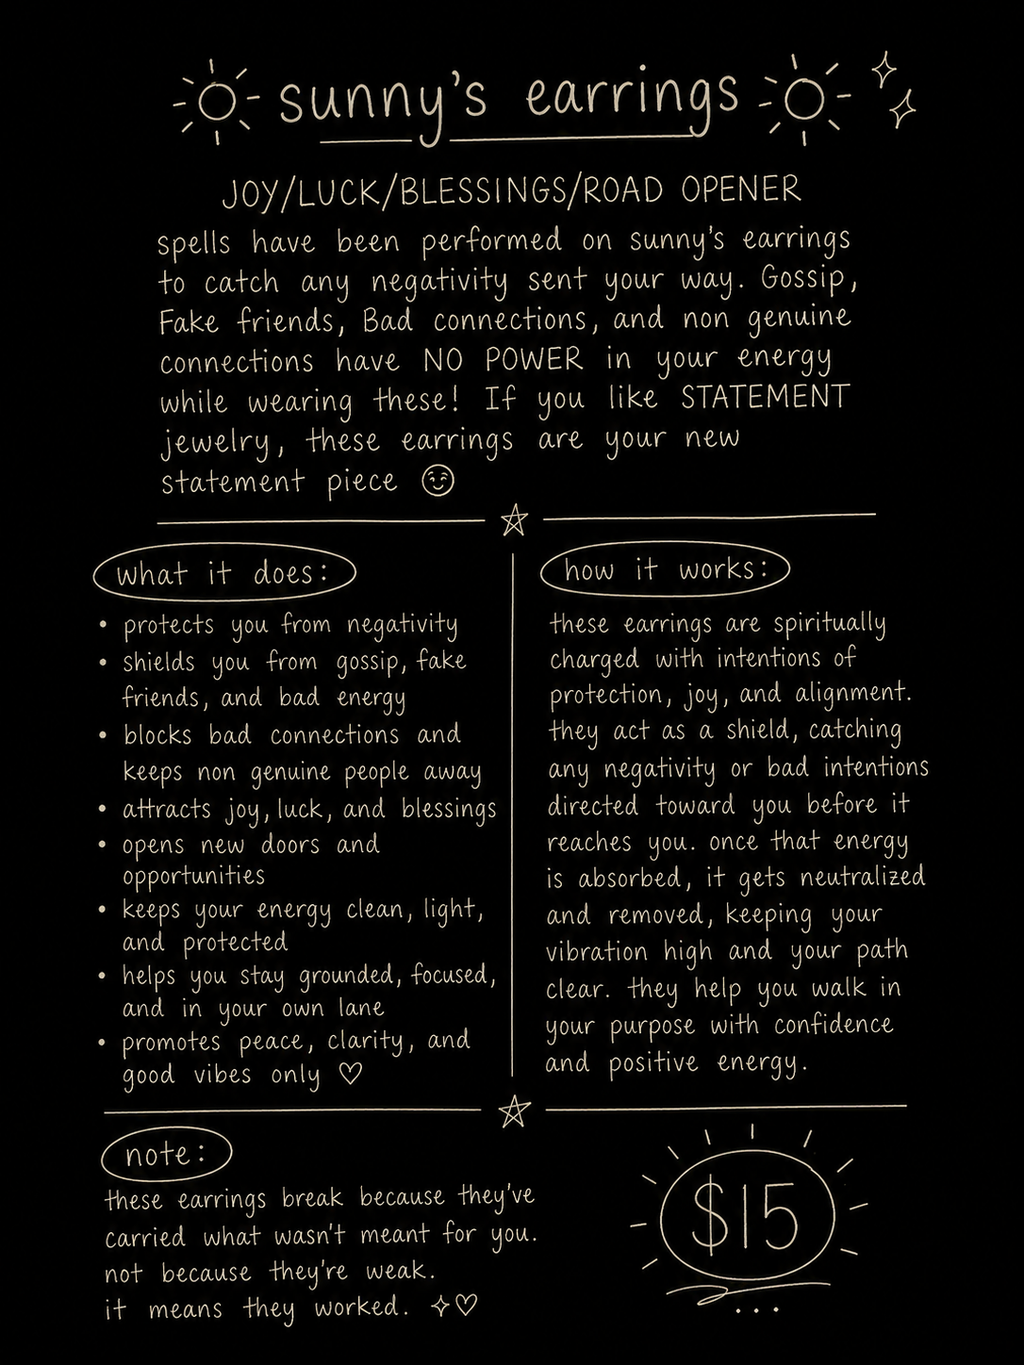 sunny's earrings
JOY/LUCK/BLESSINGS/ROAD OPENER
spells have been performed on sunny's earrings
to catch any negativity sent your way. Gossip,
Fake friends, Bad connections, and non genuine
connections have NO POWER in your energy
while wearing these! If you like STATEMENT
jewelry, these earrings are your new
statement piece ☺
what it does:
• protects you from negativity
• shields you from gossip, fake
friends, and bad energy
• blocks bad connections and
keeps non genuine people away
• attracts joy, luck, and blessings
• opens new doors and
opportunities
• keeps your energy clean, light,
and protected
• helps you stay grounded, focused,
and in your own lane
• promotes peace, clarity, and
good vibes only ♡
how it works:
these earrings are spiritually
charged with intentions of
protection, joy, and alignment.
they act as a shield, catching
any negativity or bad intentions
directed toward you before it
reaches you. once that energy
is absorbed, it gets neutralized
and removed, keeping your
vibration high and your path
clear. they help you walk in
your purpose with confidence
and positive energy.
note:
these earrings break because they've
carried what wasn't meant for you.
not because they're weak.
it means they worked. ✧♡
$15
...